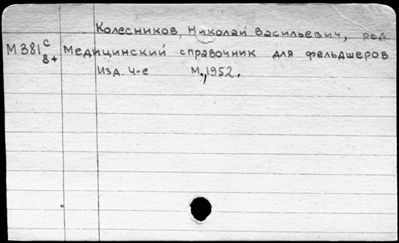 Колесников, Николай Васильевич, ред.
М381 с Медицинский справочник для фельдшеров
8+
Изд. 4-е М., 1952.